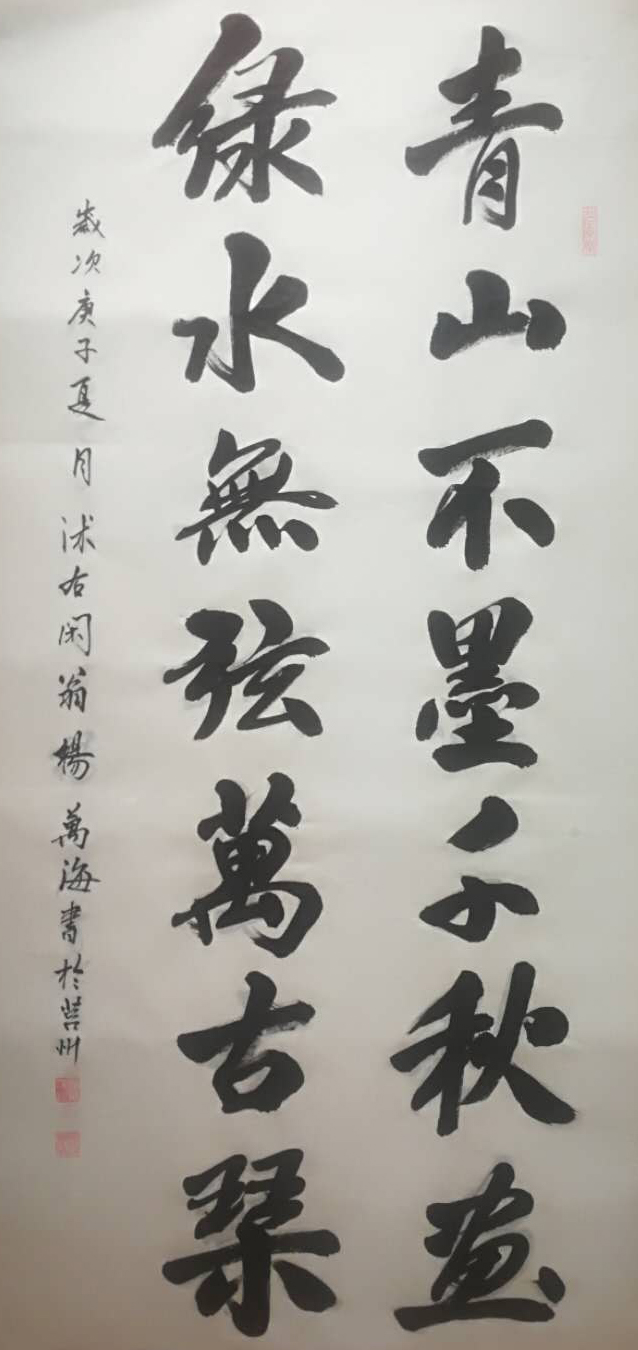 青山不墨千秋画
緑水無弦萬古琹
歲次庚子夏月沭右闲翁楊萬海書於莒州